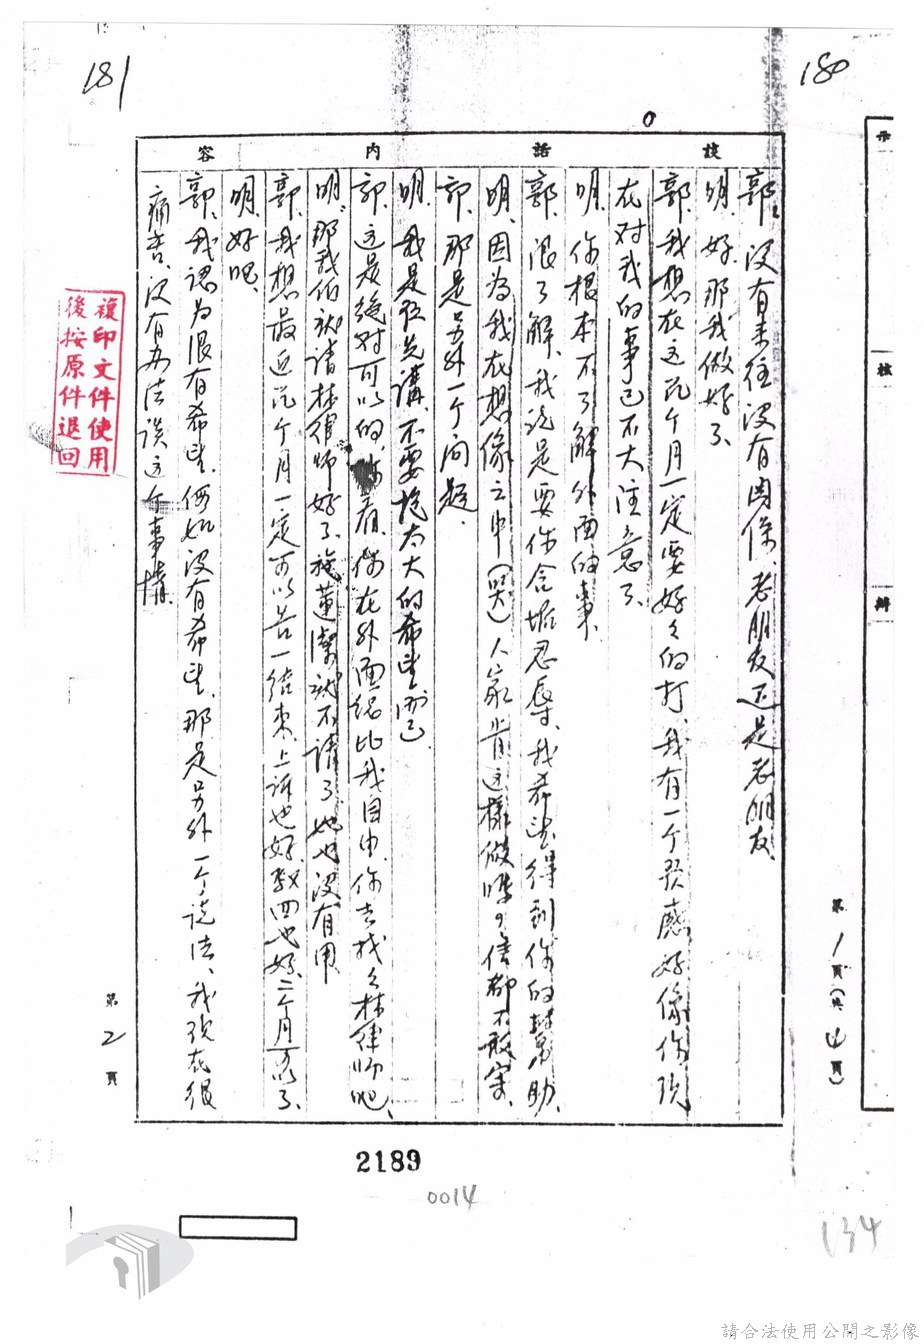 181
180
談話內容
郭、沒有來往沒有関係、老朋友还是老朋友、
明、好、那我做好了、
郭、我想在这几个月一定要好々的打、我有一个預感、好像你現
在对我的事已不大注意了、
明、你根本不了解外面的事、
郭、很了解、我説是要你含垢忍辱、我希望得到你的幇助、
明、因為我在想像之中（哭）人家肯这樣做嗎？信都不敢寄、
郭、那是另外一个问題、
明、我是在先講、不要抱太大的希望而已、
郭、这是絶对可以的、看、你在外面総比我自由、你去找々林律師吧、
明、那我们就請林律師好了、施董潔就不請了、她也沒有用、
郭、我想最近几个月一定可以告一结束、上訴也好、數四也好、二个月可以了、
明、好吧、
郭、我認為很有希望、假如沒有希望、那是另外一个説法、我現在很
痛苦、沒有办法談这个事情、
第2頁
第1頁（共4頁）
示
核
辦
複印文件使用
後按原件退回
2189
0014
134
請合法使用公開之影像